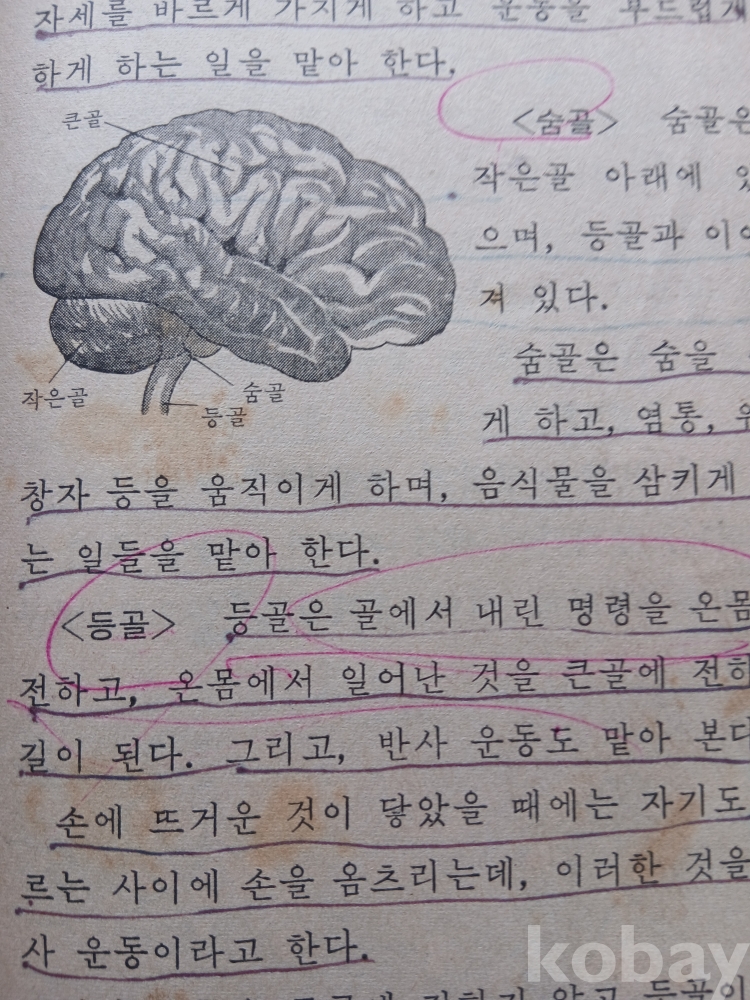 자세를 바르게 가지게 하고 운동을 부드럽게
하게 하는 일을 맡아 한다.
큰골
<숨골> 숨골은
작은골 아래에 있
으며, 등골과 이어
져 있다.
숨골은 숨을
작은골
숨골
등골
게 하고, 염통,
창자 등을 움직이게 하며, 음식물을 삼키게
는 일들을 맡아 한다.
<등골> 등골은 골에서 내린 명령을 온몸
전하고, 온몸에서 일어난 것을 큰골에 전하
길이 된다. 그리고, 반사 운동도 맡아 본다
손에 뜨거운 것이 닿았을 때에는 자기도
르는 사이에 손을 옴츠리는데, 이러한 것을
사 운동이라고 한다.
kobay